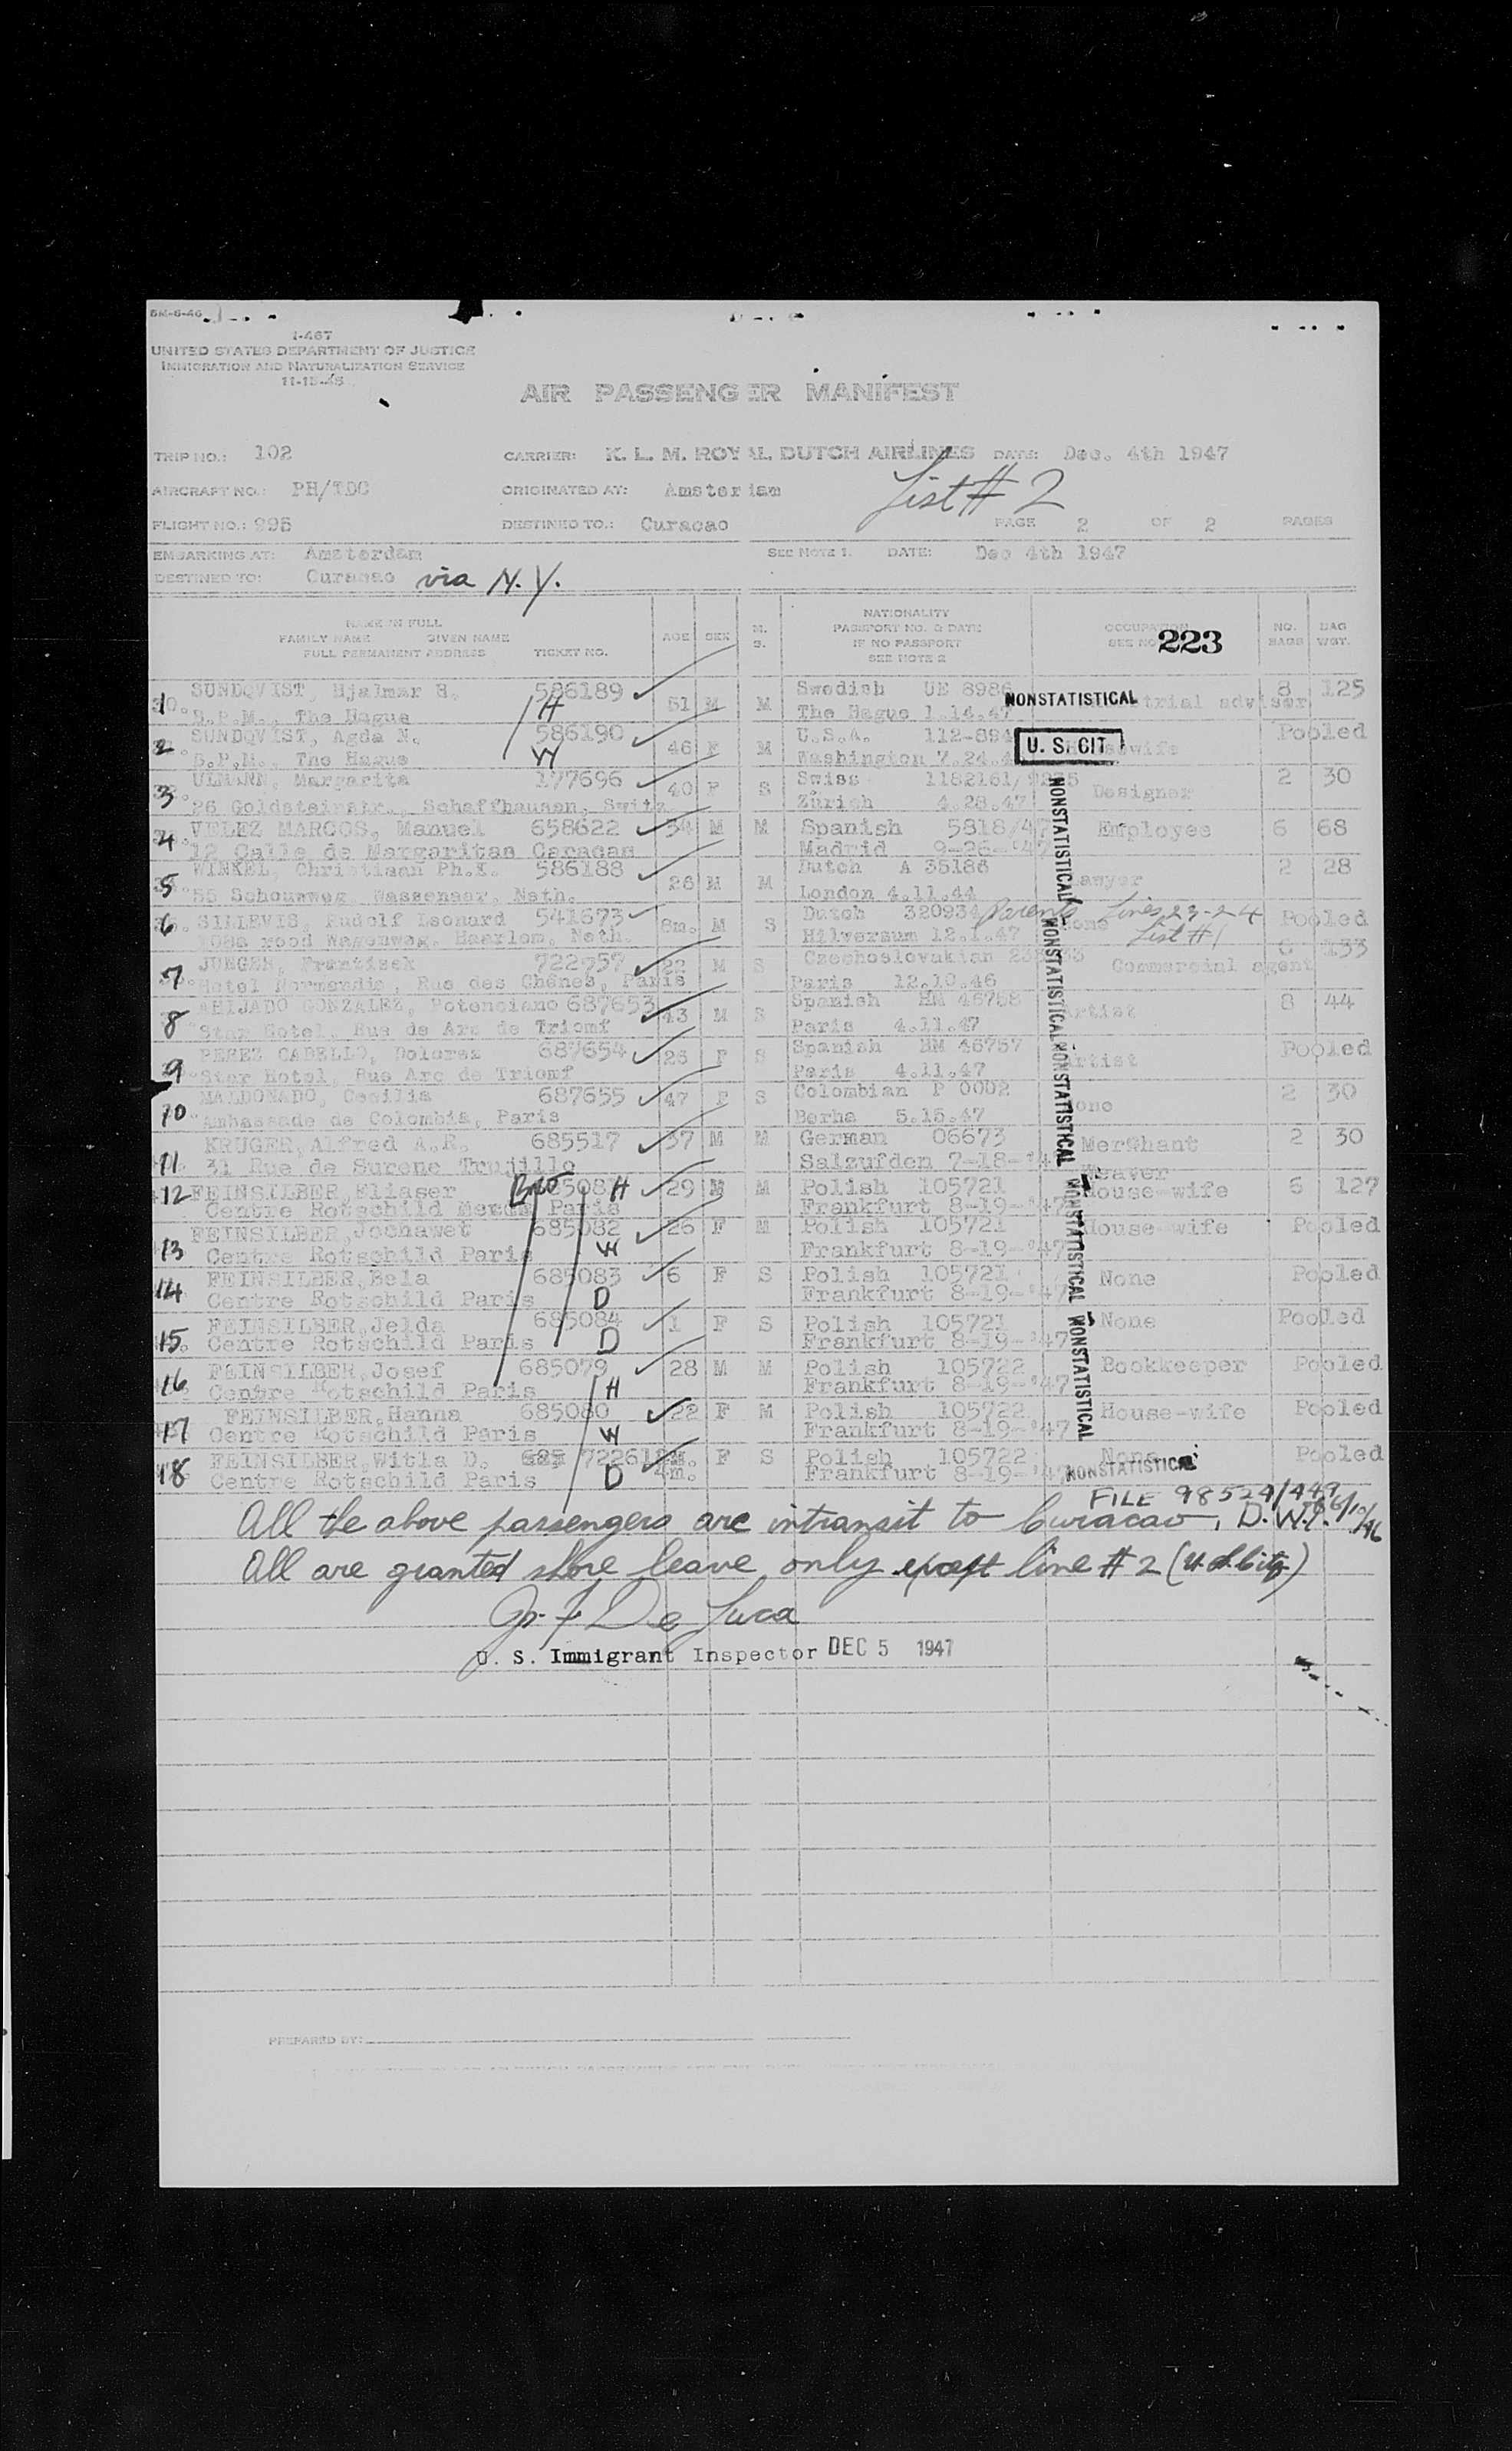 5M-6-46
I-467
UNITED STATES DEPARTMENT OF JUSTICE
IMMIGRATION AND NATURALIZATION SERVICE
11-15-45
AIR PASSENGER MANIFEST
TRIP NO.: 102 CARRIER: K. L. M. ROYAL DUTCH AIRLINES DATE: Dec. 4th 1947
AIRCRAFT NO.: PH/TDC ORIGINATED AT: Amsterdam List # 2
FLIGHT NO.: 995 DESTINED TO.: Curacao PAGE 2 OF 2 PAGES
EMBARKING AT: Amsterdam SEE NOTE 1. DATE: Dec 4th 1947
DESTINED TO: Curacao via N.Y.
NAME IN FULL
FAMILY NAME GIVEN NAME
FULL PERMANENT ADDRESS TICKET NO. AGE SEX M. S. NATIONALITY PASSPORT NO. & DATE IF NO PASSPORT SEE NOTE 2 OCCUPATION SEE NO 223 NO. BAGS BAG WGT.
1 SUNDQVIST, Hjalmar 586189 H 51 M M Swedish UE 8986 NONSTATISTICAL trial adviser 8 125
B.P.M., The Hague The Hague 1.14.47
2 SUNDQVIST, Agda N. 586190 W 46 F M U.S.A. 112-894 U. S. CIT Housewife Pooled
B.P.M., The Hague Washington 7.24.4
3 ULMANN, Margarita 177696 40 F S Swiss 1182161/ Designer 2 30
26 Goldsteinstr., Schaffhausen, Switz. Zürich 4.28.47
4 VELEZ MARCOS, Manuel 658622 34 M M Spanish 5818/47 Employee 6 68
12 Calle de Margaritas Caracas Madrid 9-26-'47
5 WINKEL, Christiaan Ph.K. 586188 26 M M Dutch A 35186 Lawyer 2 28
55 Schouwweg Wassenaar, Neth. London 4.11.44
6 SILLEVIS, Rudolf Leonard 541673 8m. M S Dutch 320934 Parents Lines 23-24 None List #1 Pooled
Wagenweg, Haarlem, Neth. Hilversum 12.1.47
7 JUNGER, Frantisek 722757 22 M S Czechoslovakian Commercial agent 6 133
Hotel Normandie, Rue des Chênes, Paris Paris 12.10.46
8 AHIJADO GONZALEZ, Potenciano 687653 43 M S Spanish HM 46758 Artist 8 44
Star Hotel, Rue de Arc de Triomf Paris 4.11.47
9 PEREZ CABELLO, Dolores 687654 26 F S Spanish HM 46757 Artist Pooled
Star Hotel, Rue Arc de Triomf Paris 4.11.47
10 MALDONADO, Cecilia 687655 47 F S Colombian P 0002 None 2 30
Ambassade de Colombia, Paris Berna 5.15.47
11. KRUGER, Alfred A.R. 685517 37 M M German 06673 Merchant 2 30
31 Rue de Surene Trujillo Salzufden 7-18-'4
12 FEINSILBER, Eliaser Bro 8508 H 29 M M Polish 105721 Weaver House-wife 6 127
Centre Rotschild Paris Frankfurt 8-19-'47
13 FEINSILBER, Jochawet 685082 W 26 F M Polish 105721 House-wife Pooled
Centre Rotschild Paris Frankfurt 8-19-'47
14 FEINSILBER, Bela 685083 D 6 F S Polish 105721 None Pooled
Centre Rotschild Paris Frankfurt 8-19-'47
15. FEINSILBER, Jelda 685084 D 1 F S Polish 105721 None Pooled
Centre Rotschild Paris Frankfurt 8-19-'47
16 FEINSILBER, Josef 685079 H 28 M M Polish 105722 Bookkeeper Pooled
Centre Rotschild Paris Frankfurt 8-19-'47
17 FEINSILBER, Hanna 685080 W 22 F M Polish 105722 House-wife Pooled
Centre Rotschild Paris Frankfurt 8-19-'47
18 FEINSILBER, Witla D. 72261 D 4m. F S Polish 105722 None Pooled
Centre Rotschild Paris Frankfurt 8-19-'47 NONSTATISTICAL
NONSTATISTICAL NONSTATISTICAL NONSTATISTICAL NONSTATISTICAL NONSTATISTICAL
FILE 98524/449
All the above passengers are intransit to Curacao, D.W.I.
All are granted shore leave only except line # 2 (U.S. Citz)
De Luca
U. S. Immigrant Inspector DEC 5 1947
PREPARED BY: